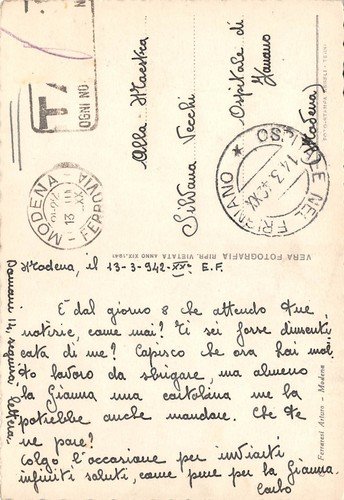 OGNI NO
Alla Maestra
Silvana Vecchi
Ospitale di
Fanano
(Modena)
MODENA FERROVIA
13 III
OSPITALE NEL FRIGNANO
14.3.42 XX
VERA FOTOGRAFIA RIPR. VIETATA ANNO XIX-1941
Ferraresi Arturo - Modena
Modena, il 13-3-942-XXº E.F.
È dal giorno 8 che attendo tue
notizie, come mai? Ti sei forse dimenti
cata di me? Capisco che ora hai mol
to lavoro da sbrigare, ma almeno
la Gianna una cartolina me la
potrebbe anche mandare. Che te
ne pare?
Colgo l'occasione per inviarti
infiniti saluti, come pure per la Gianna.
Carlo
Domani 14, seguirà lettera.